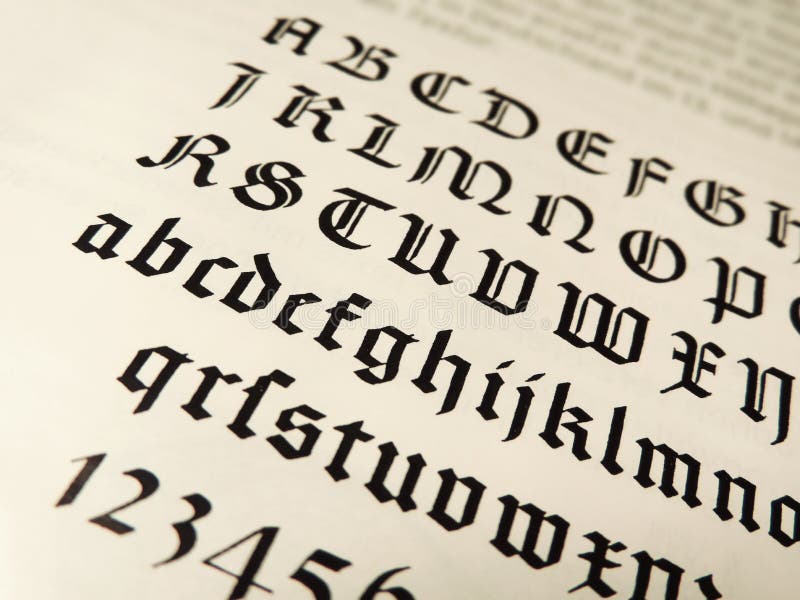 ABCDEFGH
JKLMNOP
RSTUVWXY
abcdefghijklmno
qrſstuvwxy
123456